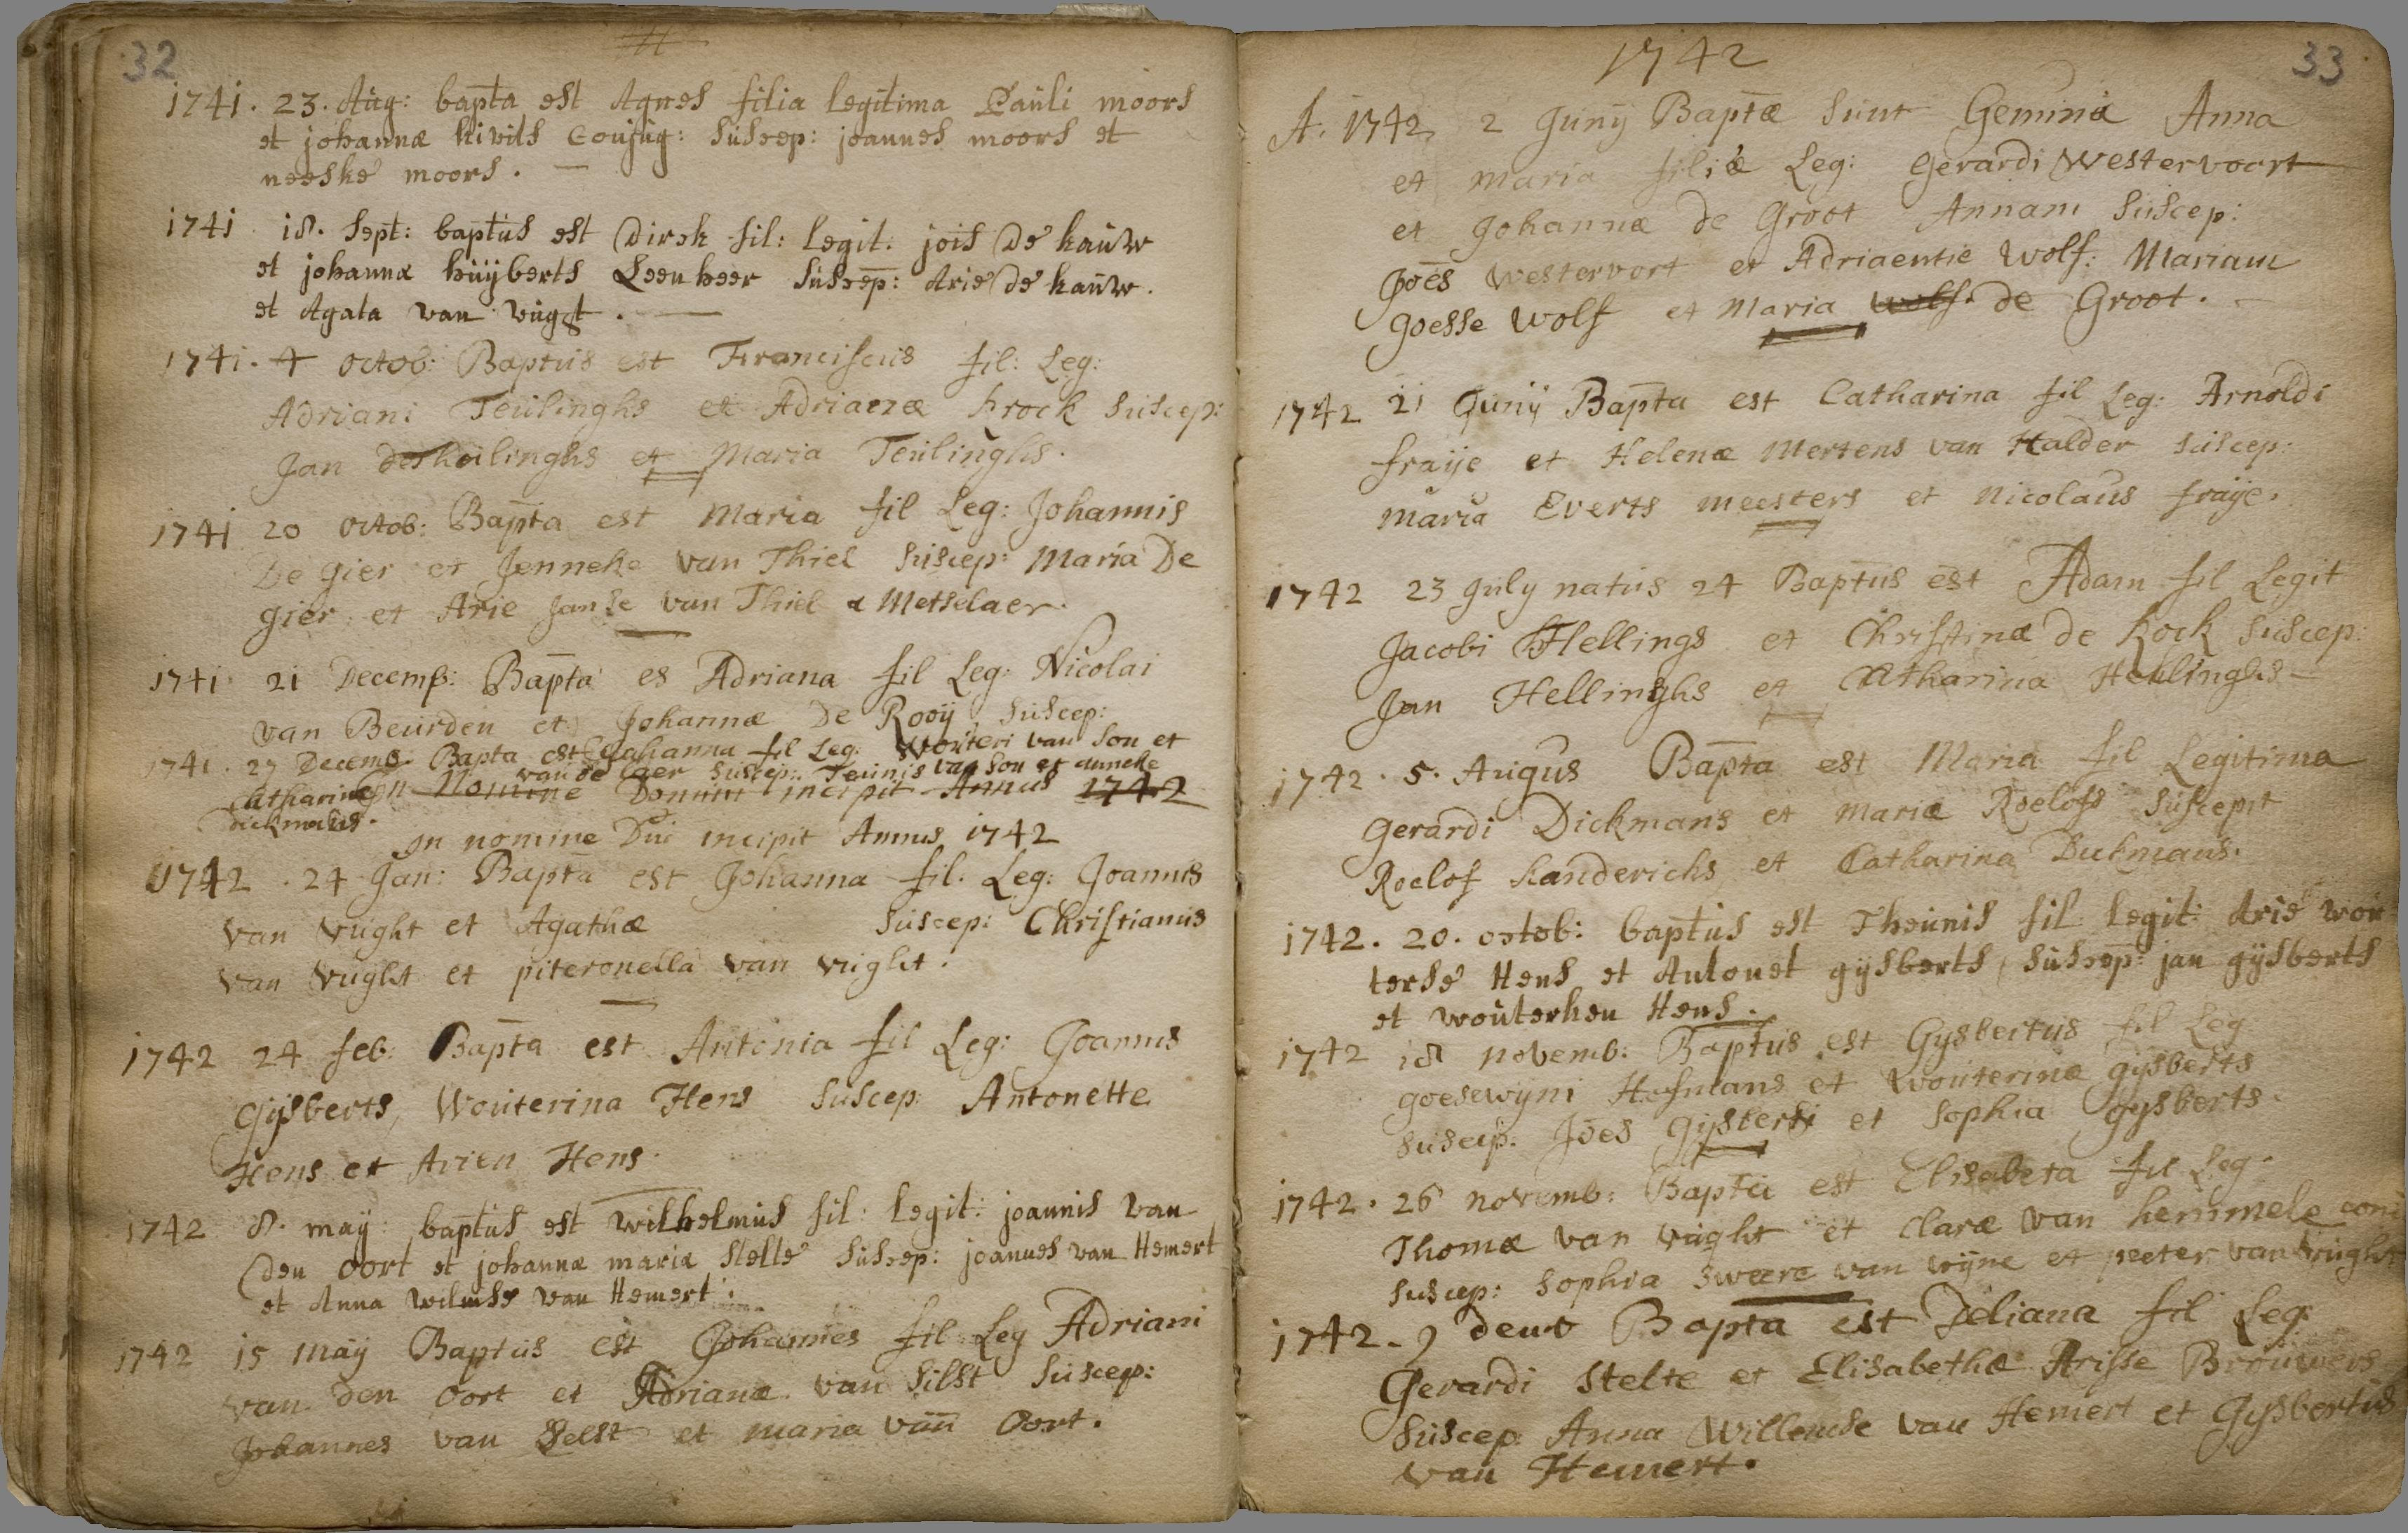 32
1741. 23. Aug: bapta est Agnes filia legitima Pauli moors
et johannæ kivits Conjug: suscep: joannes moors et
neeske moors.
1741 18. Sept: baptus est Dirck fil: legit: jois De kauw
et johannæ huijberts Leenheer suscep: Arie De kauw.
et Agata van vugt.
1741. 4 octob: Baptus est Franciscus fil: Leg:
Adriani Teulinghs et Adrianæ krock suscep:
Jan Teulinghs et Maria Teulinghs.
1741 20 octob: Bapta est Maria fil Leg: Johannis
De gier et Jenneke van Thiel suscep: Maria De
gier et Arie Janse van Thiel a Metselaer.
1741 21 Decemb: Bapta es Adriana fil Leg: Nicolai
van Beurden et Johannæ De Rooij suscep:
1741. 27 Decemb Bapta est Johanna fil Leg: Wouteri van Son et
Catharinæ van de laer suscep: Teunis van Son et anneke
Dickmans.
In Nomine Domini incipit Annus 1742
In nomine Dni incipit Annus 1742
1742. 24 Jan: Bapta est Johanna fil. Leg: Joannis
van vught et Agathæ suscep: Christianus
van vught et piteronella van vught.
1742 24 feb: Bapta est Antonia fil Leg: Joannis
Gijsberts, Wouterina Hens suscep: Antonette
Hens et Arien Hens.
1742 8. maij: baptus est wilhelmus fil: legit: joannis van
den oort et johannæ mariæ stelte suscep: joannes van Hemert
et Anna wilmse van Hemert.
1742 15 maij Baptus est Johannes fil: Leg Adriani
van den oort et Adrianæ van Silst suscep:
Johannes van Selst et maria van Oort.
1742
33
A. 1742 2 Junij Baptæ sunt Geminæ Anna
et maria filiæ Leg: Gerardi Westervoort
et Johannæ de Groot Annam suscep:
Joes westervort et Adriaentie wolf: Mariam
goesse wolf et Maria wolf. de Groot.
1742 21 Junij Bapta est Catharina fil Leg: Arnoldi
fraije et Helenæ Mertens van Halder suscep:
maria Everts meesters et Nicolaus fraije.
1742 23 July natus 24 Baptus est Adam fil Legit
Jacobi Hellings et Christinæ de Kock suscep:
Jan Hellinghs et Catharina Hellinghs
1742. 5. Augus Bapta est Maria fil Legitima
Gerardi Dickmans et Mariæ Roelofs suscepit
Roelof handerichs et Catharina Dickmans.
1742. 20. octob: baptus est Theunis fil legit: Arie wou
terse Hens et Antonet gijsberts, suscep: jan gijsberts
et wouterken Hens.
1742 18 novemb: Baptus est Gysbertus fil Leg
goesewijni Hofmans et wouterinæ gijsberts
suscep: Joes Gijsberti et Sophia gijsberts.
1742. 26 novemb: Bapta est Elisabeta fil Leg.
Thomæ van vught et Claræ van hemmele
suscep: Sophia Sweere van wijne et peeter van vught
1742. 9 Bapta est Deliana fil Leg:
Gerardi stelte et Elisabethæ Arisse Brouwers
suscep Anna Willemse van Hemert et Gysbertus
van Hemert.